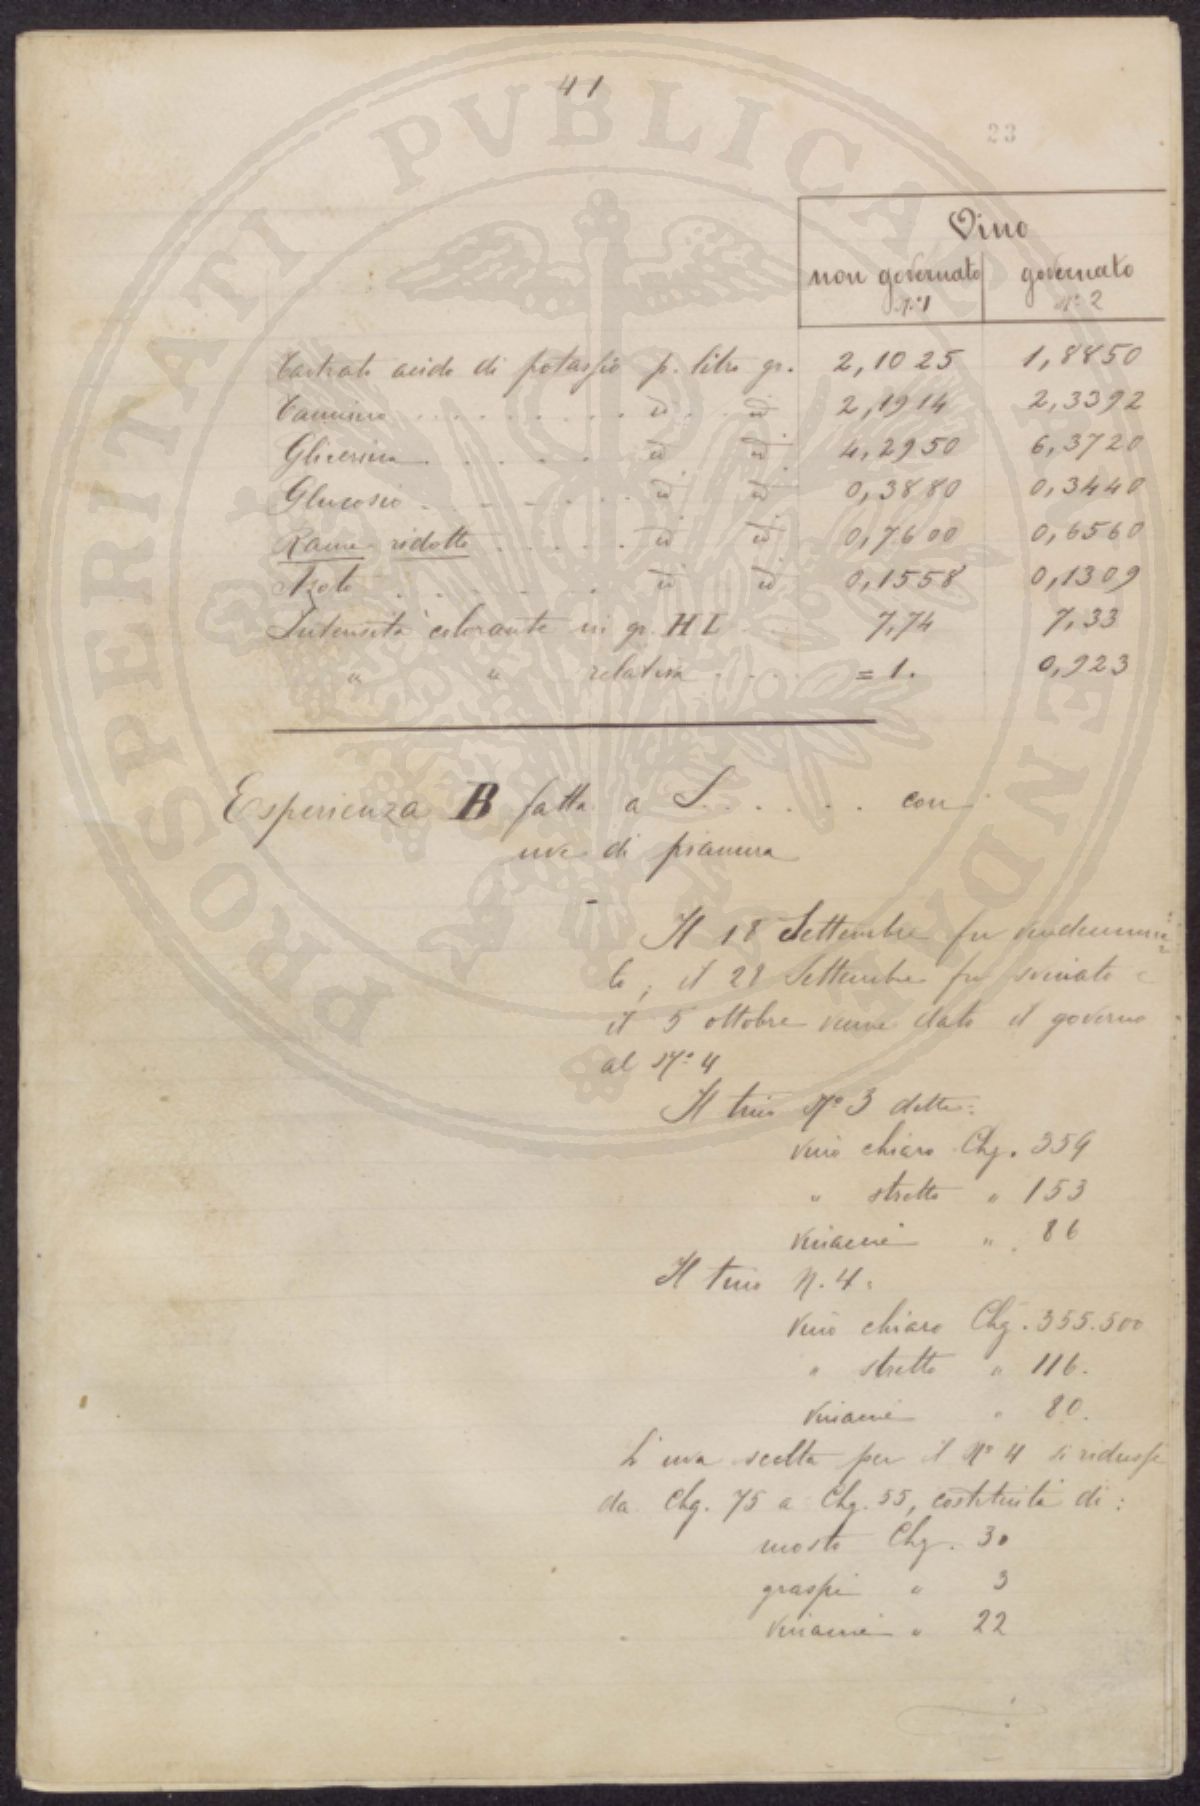 41
23
Vino
non governato governato
N.º 1 N.º 2
Tartrato acido di potassio p. litro gr. 2,1025 1,8850
Tannino . . . . . . . . . id . . id 2,1914 2,3392
Glicerina . . . . . . id id 4,2950 6,3720
Glucosio . . . . . . id id 0,3880 0,3440
Rame ridotto . . . . . . id id 0,7600 0,6560
Azoto . . . . . . id id 0,1558 0,1309
Intensità colorante in gr. HI . . 7,74 7,33
" " relativa . . . . = 1. 0,923
Esperienza B fatta a S. . . . . . con
uve di pianura
Il 18 Settembre fu vendemmia=
to; il 28 Settembre fu svinato e
il 5 ottobre venne dato il governo
al Nº 4
Il tino Nº 3 dette:
vino chiaro Chg. 359
" stretto " 153
vinacce " 86
Il tino N. 4:
vino chiaro Chg. 355.500
" stretto " 116.
vinacce " 80.
L'uva scelta per il Nº 4 si ridusse
da Chg. 75 a Chg. 55, costituita di:
mosto Chg. 30
graspi " 3
vinacce " 22
PROSPERITATI PVBLICAE AVGENDAE